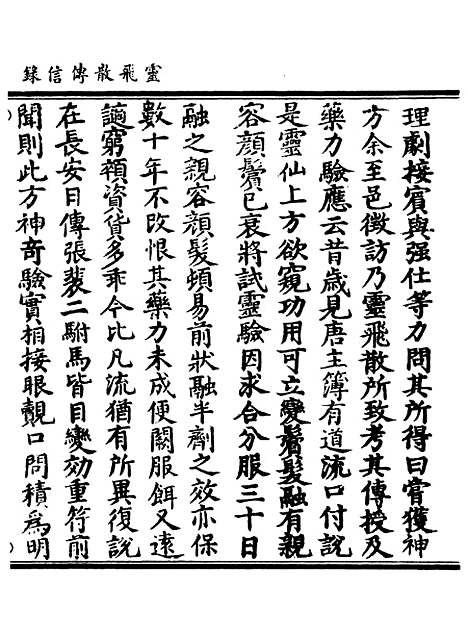 靈飛散傳信録
理劇接賓與强仕等力問其所得曰嘗獲神
方余至邑徴訪乃靈飛散所致考其傳授及
藥力驗應云昔歲見唐主簿有道流口付說
是靈仙上方欲窺功用可立變鬢髮融有親
容顔鬢已衰將試靈驗因求合分服三十日
融之親容顔髮頓易前狀融半劑之效亦保
數十年不改恨其藥力未成便闕服餌又遠
謫窮禎資貨多乖今比凡流猶有所異復說
在長安日傳張裴二駙馬皆目變効重符前
聞則此方神奇驗實相接眼覿口問積爲明